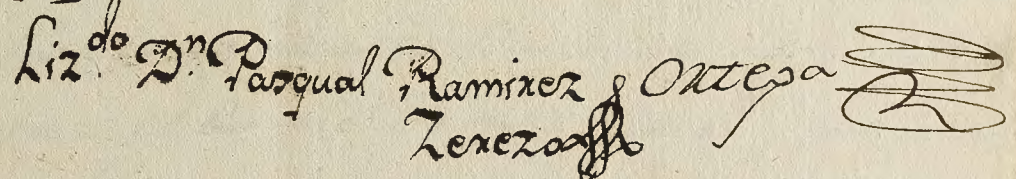 Liz.do D.n Pasqual Ramirez y Ortega
Zerezo